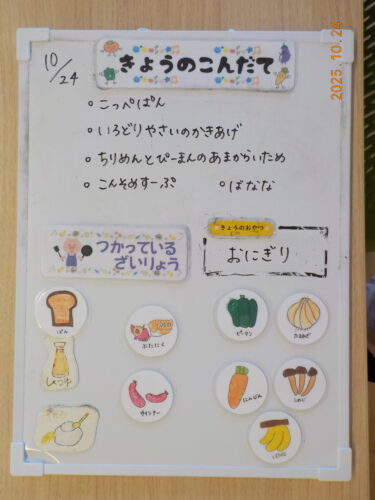 2025.10.24
10/24
きょうのこんだて
○こっぺぱん
○いろどりやさいのかきあげ
○ちりめんとぴーまんのあまからいため
○こんそめすーぷ ○ばなな
つかっている
ざいりょう
きょうのおやつ
おにぎり
ぱん
ぶたにく
ピーマン
たまねぎ
しょうゆ
ウインナー
にんじん
しめじ
ばなな